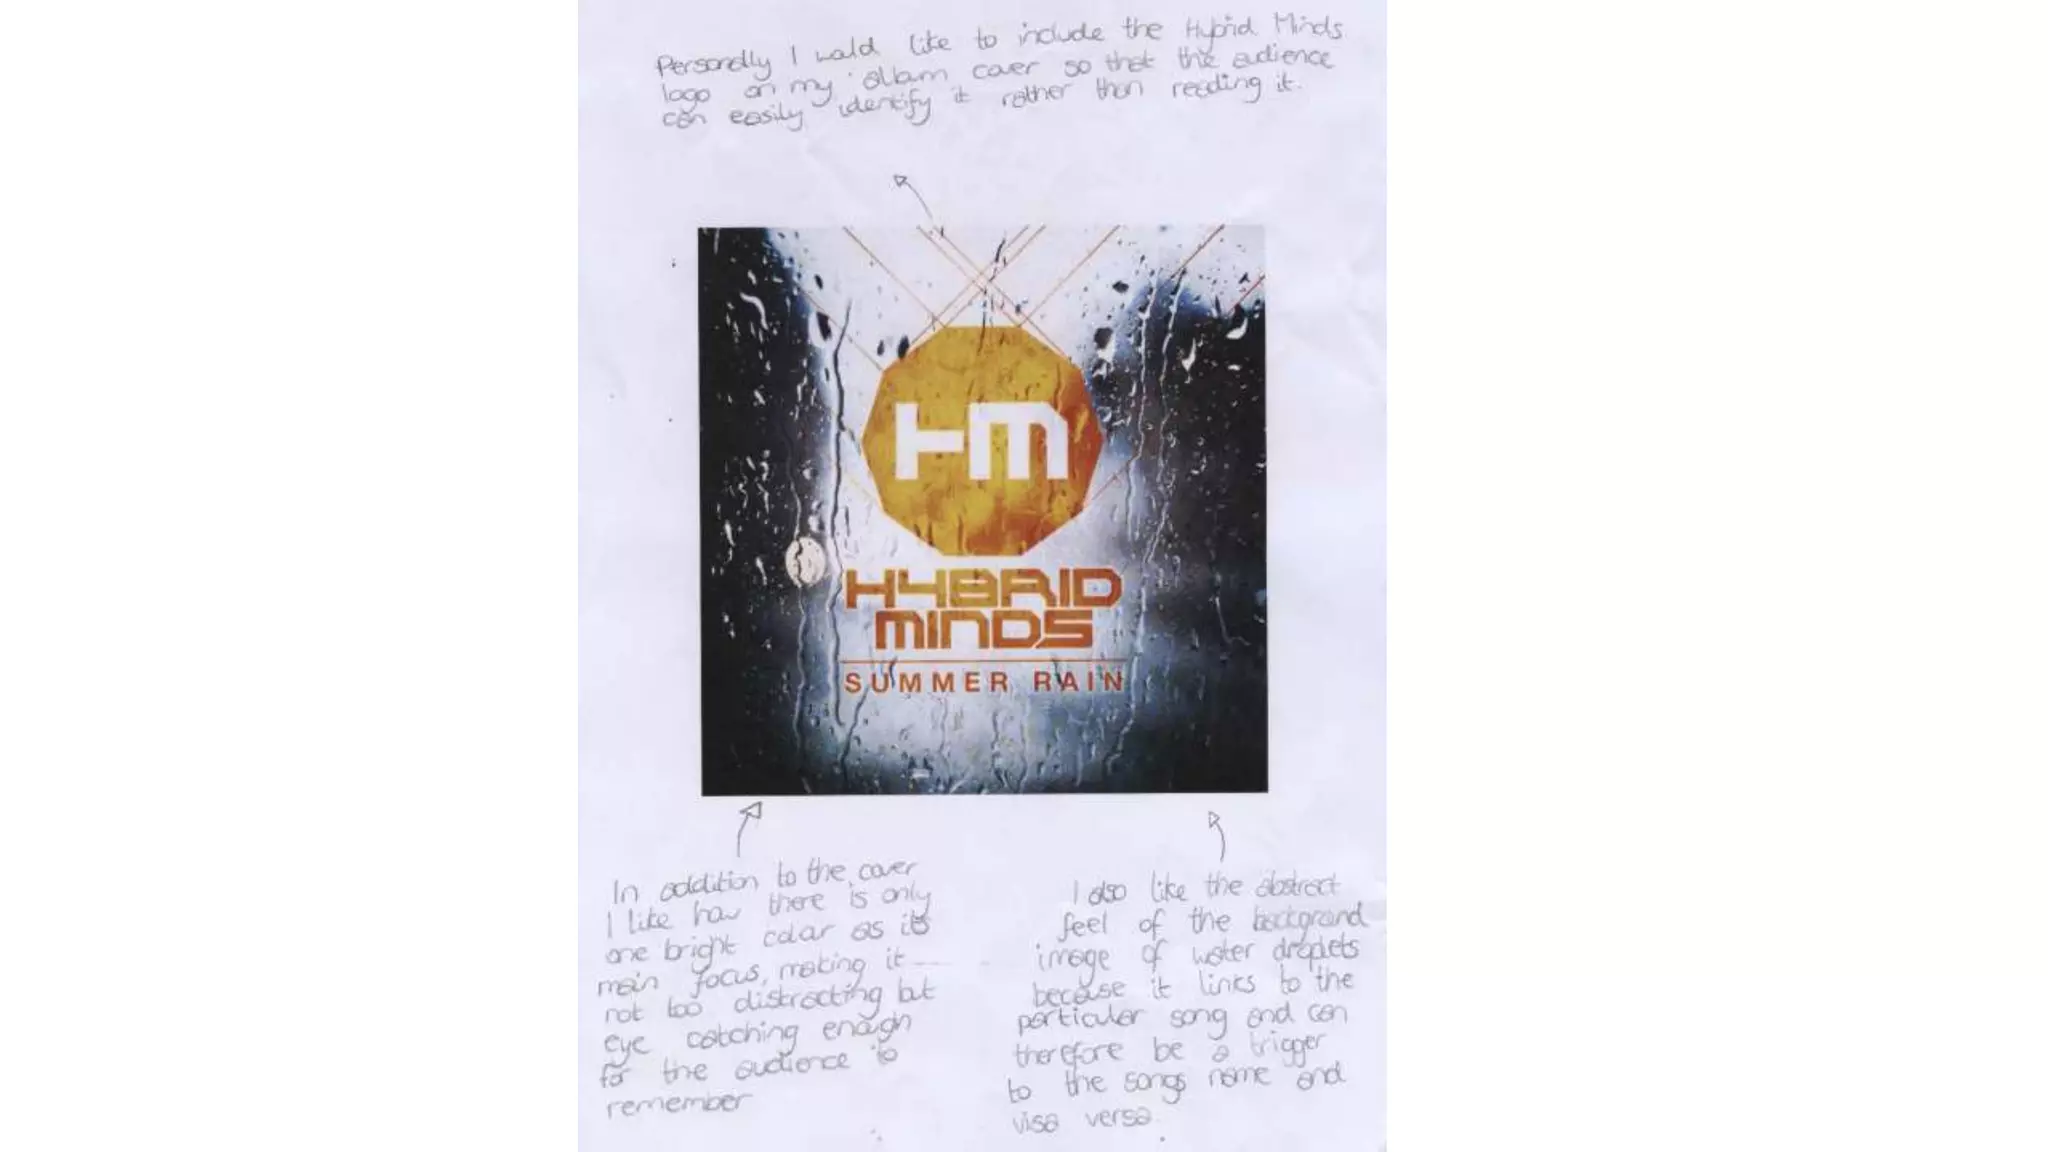 Personally I would like to include the Hybrid Minds
logo on my album cover so that the audience
can easily identify it rather than reading it.
HM
HYBRID
MINDS
SUMMER RAIN
In addition to the cover
I like how there is only
one bright colour as its
main focus, making it
not too distracting but
eye catching enough
for the audience to
remember
I also like the abstract
feel of the background
image of water droplets
because it links to the
particular song and can
therefore be a trigger
to the songs name and
visa versa.